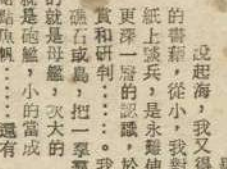 說起海,我又得
的書籍,從小,我對
紙上談兵,是永難使
更深一層的認識,於
賞和研判⋯⋯。我
礁石或島,把一羣
的就是母艦,次大的
就是砲艦,小的當成
點魚帆⋯⋯還有